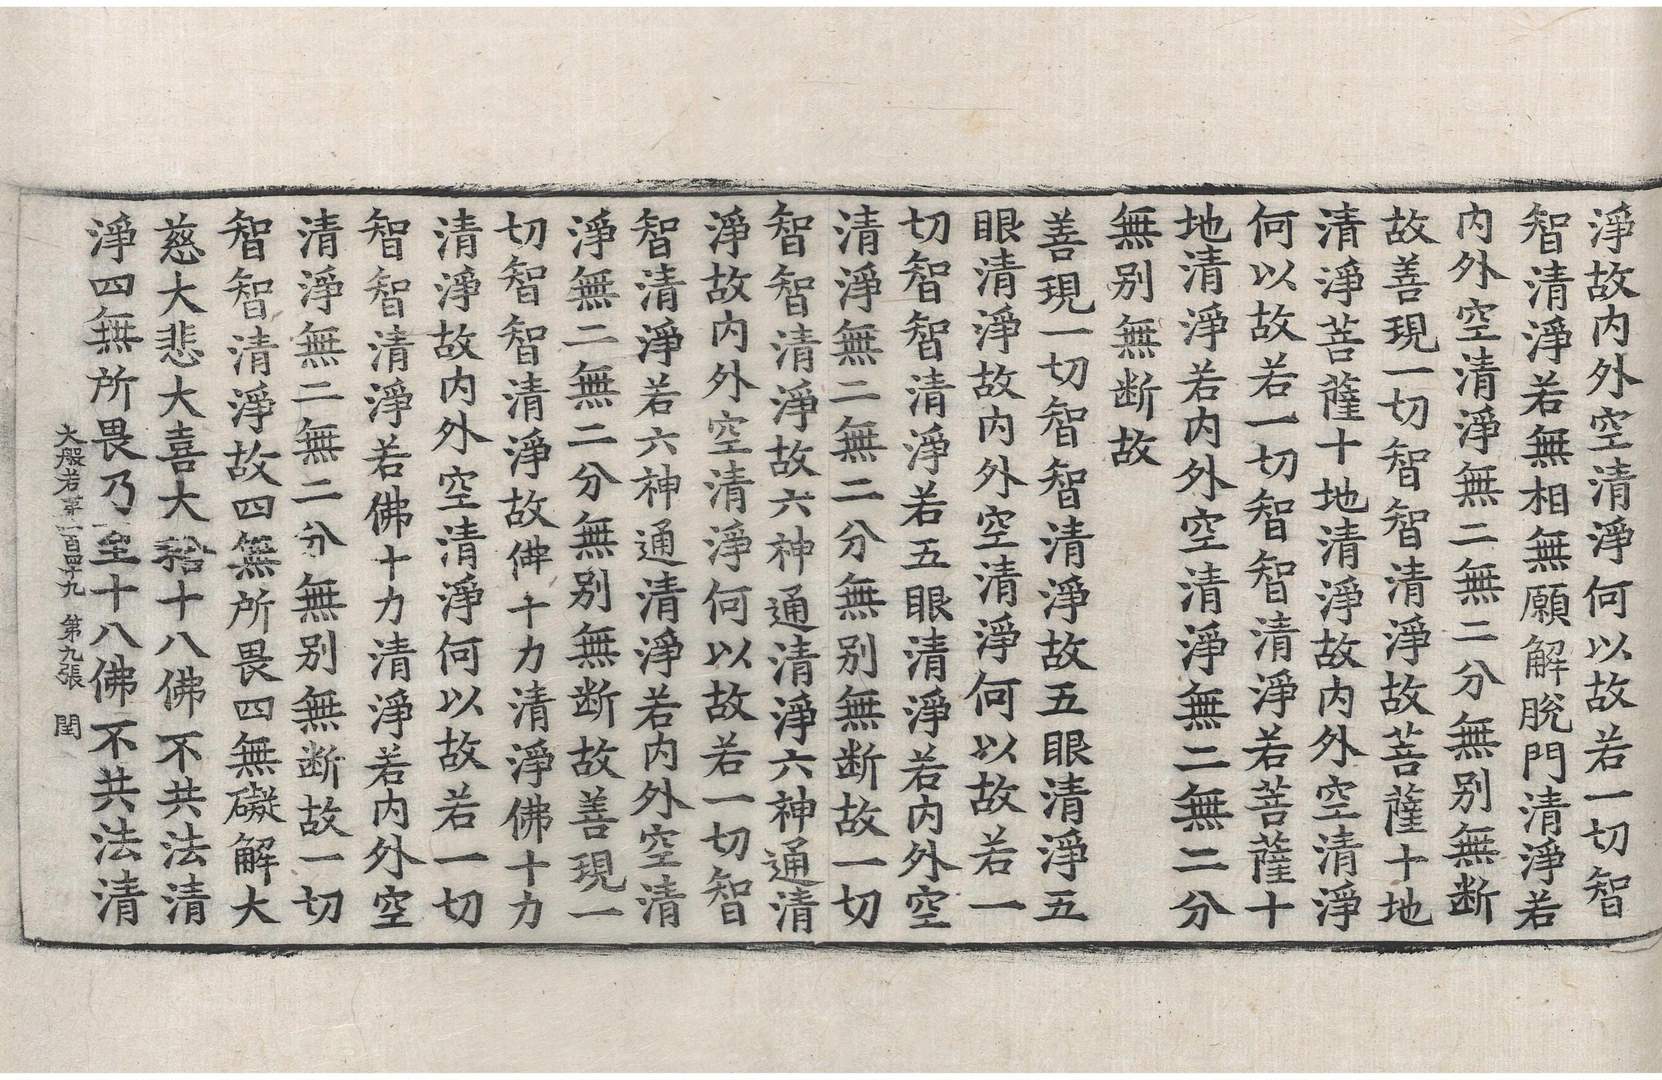 淨故内外空清淨何以故若一切智
智清淨若無相無願解脫門清淨若
内外空清淨無二無二分無別無断
故善現一切智智清淨故菩薩十地
清淨菩薩十地清淨故内外空清淨
何以故若一切智智清淨若菩薩十
地清淨若内外空清淨無二無二分
無別無断故
善現一切智智清淨故五眼清淨五
眼清淨故内外空清淨何以故若一
切智智清淨若五眼清淨若内外空
清淨無二無二分無別無断故一切
智智清淨故六神通清淨六神通清
淨故内外空清淨何以故若一切智
智清淨若六神通清淨若内外空清
淨無二無二分無別無断故善現一
切智智清淨故佛十力清淨佛十力
清淨故内外空清淨何以故若一切
智智清淨若佛十力清淨若内外空
清淨無二無二分無別無断故一切
智智清淨故四無所畏四無礙解大
慈大悲大喜大捨十八佛不共法清
淨四無所畏乃至十八佛不共法清
大般若第二百四十九 第九張 閏